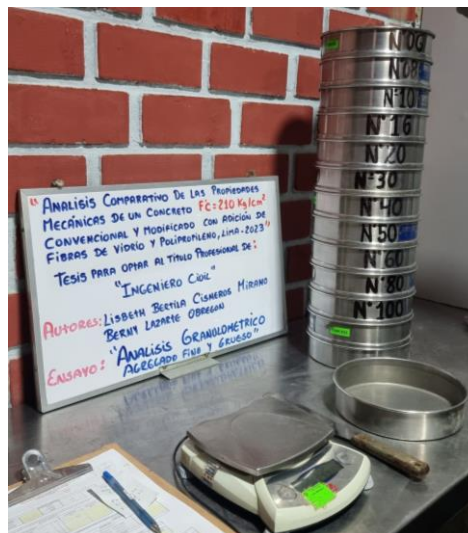 "ANALISIS COMPARATIVO DE LAS PROPIEDADES
MECÁNICAS DE UN CONCRETO F'c=210 Kg/cm²
CONVENCIONAL Y MODIFICADO CON ADICIÓN DE
FIBRAS DE VIDRIO Y POLIPROPILENO, LIMA-2023"
TESIS PARA OPTAR AL TÍTULO PROFESIONAL DE:
"INGENIERO CIVIL"
AUTORES: LISBETH BERTILA CISNEROS MIRANO
BERNY LAZARTE OBREGON
ENSAYO: "ANALISIS GRANULOMETRICO
AGREGADO FINO Y GRUESO"
N°08
N°10
N°16
N°20
N°30
N°40
N°50
N°60
N°80
N°100